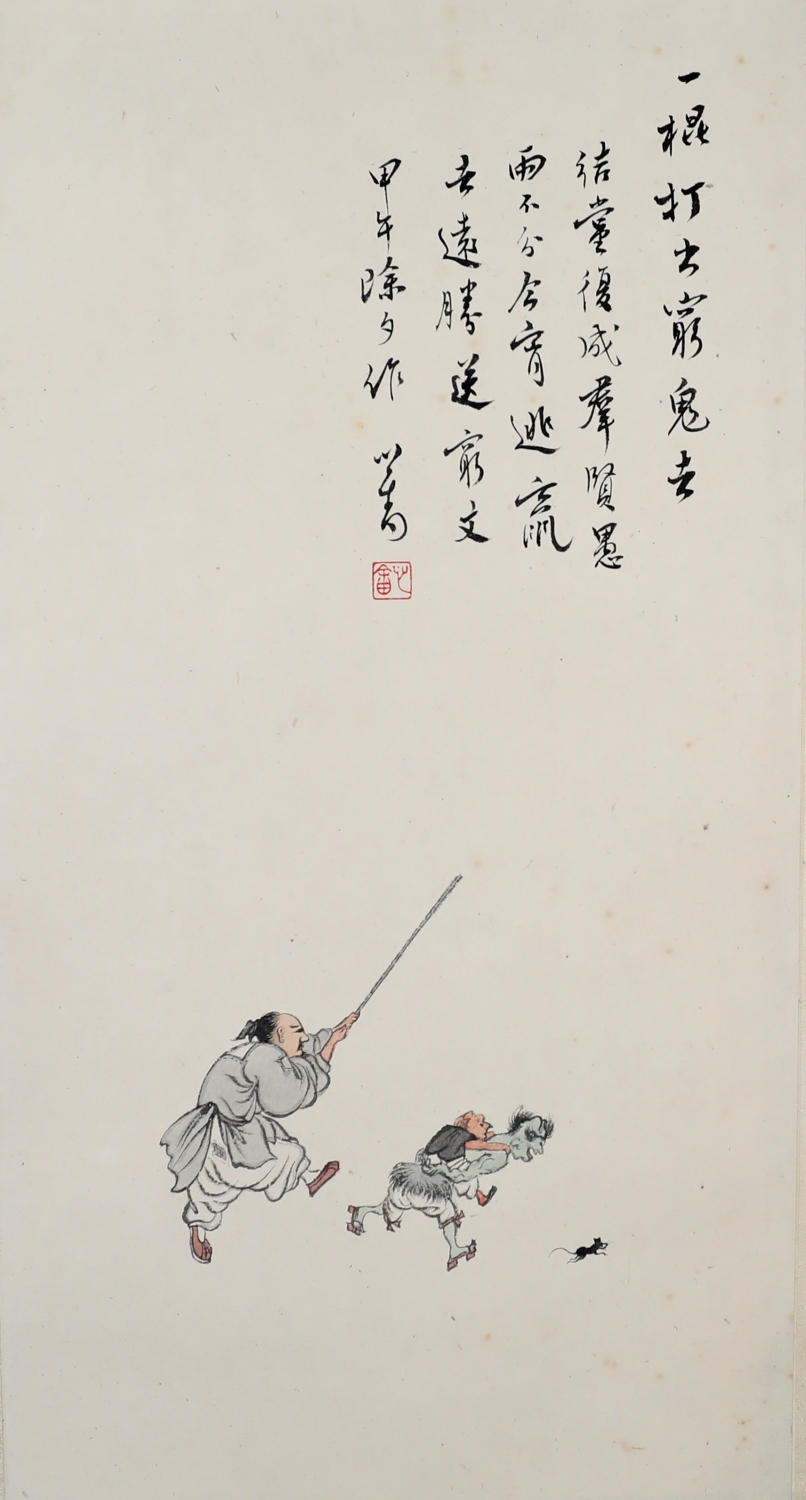 一棍打出窮鬼去
結黨復成羣賢愚
兩不分今宵逃竄
去遠勝送窮文
甲午除夕作
心畬